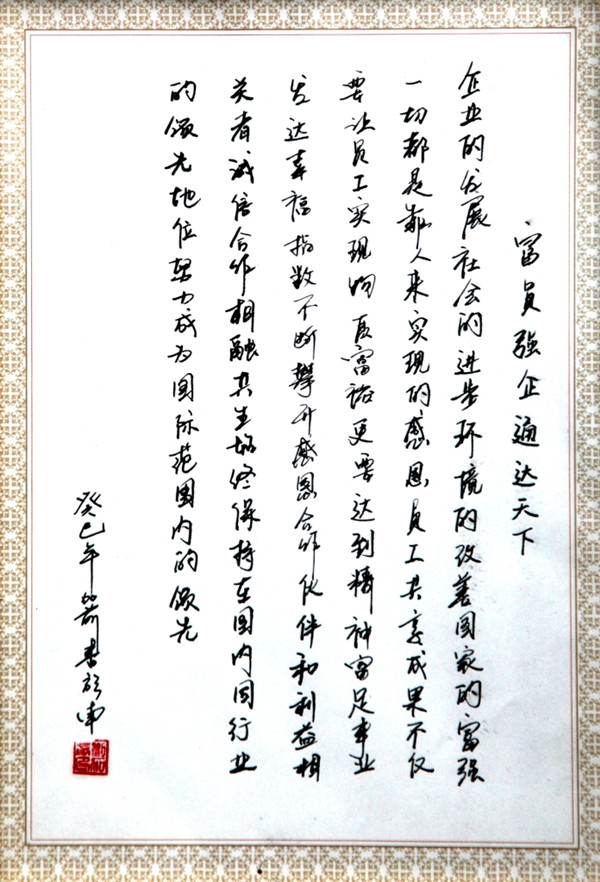 富员强企通达天下
企业的发展社会的进步环境的改善国家的富强
一切都是靠人来实现的感恩员工共享成果不仅
要让员工实现物质富裕更要达到精神富足事业
发达幸福指数不断攀升感恩合作伙伴和利益相
关者诚信合作相融共生始终保持在国内同行业
的领先地位努力成为国际范围内的领先
癸巳年 书于